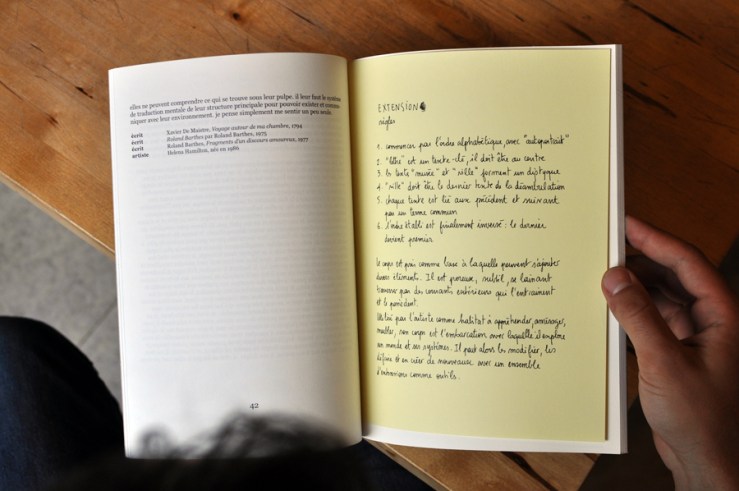 elles ne peuvent comprendre ce qui se trouve sous leur pulpe. il leur faut le système
de traduction mentale de leur structure principale pour pouvoir exister et commu-
niquer avec leur environnement. je pense simplement me sentir un peu seule.
écrit : Xavier De Maistre, Voyage autour de ma chambre, 1794
écrit : Roland Barthes par Roland Barthes, 1975
écrit : Roland Barthes, Fragments d'un discours amoureux, 1977
artiste : Helena Hamilton, née en 1986
42
EXTENSION
règles
1. commencer par l'ordre alphabétique, avec "autoportrait"
2. "être" est un texte-clé, il doit être au centre
3. les textes "musée" et "ville" forment un diptyque
4. "ville" doit être le dernier texte de la déambulation
5. chaque texte est lié aux précédent et suivant
par un terme commun
6. l'ordre établi est finalement inversé : le dernier
devient premier
Le corps est pris comme base à laquelle peuvent s'ajouter
divers éléments. Il est poreux, subtil, se laissant
traverser par des courants extérieurs qui l'entrainent
et le précèdent.
par l'artiste comme habitat à appréhender, aménager,
meubler, son corps est l'embarcation avec laquelle il explore
un monde et ses systèmes. Il peut alors les modifier, les
et en créer de nouveaux avec un ensemble
d'extensions comme outils.